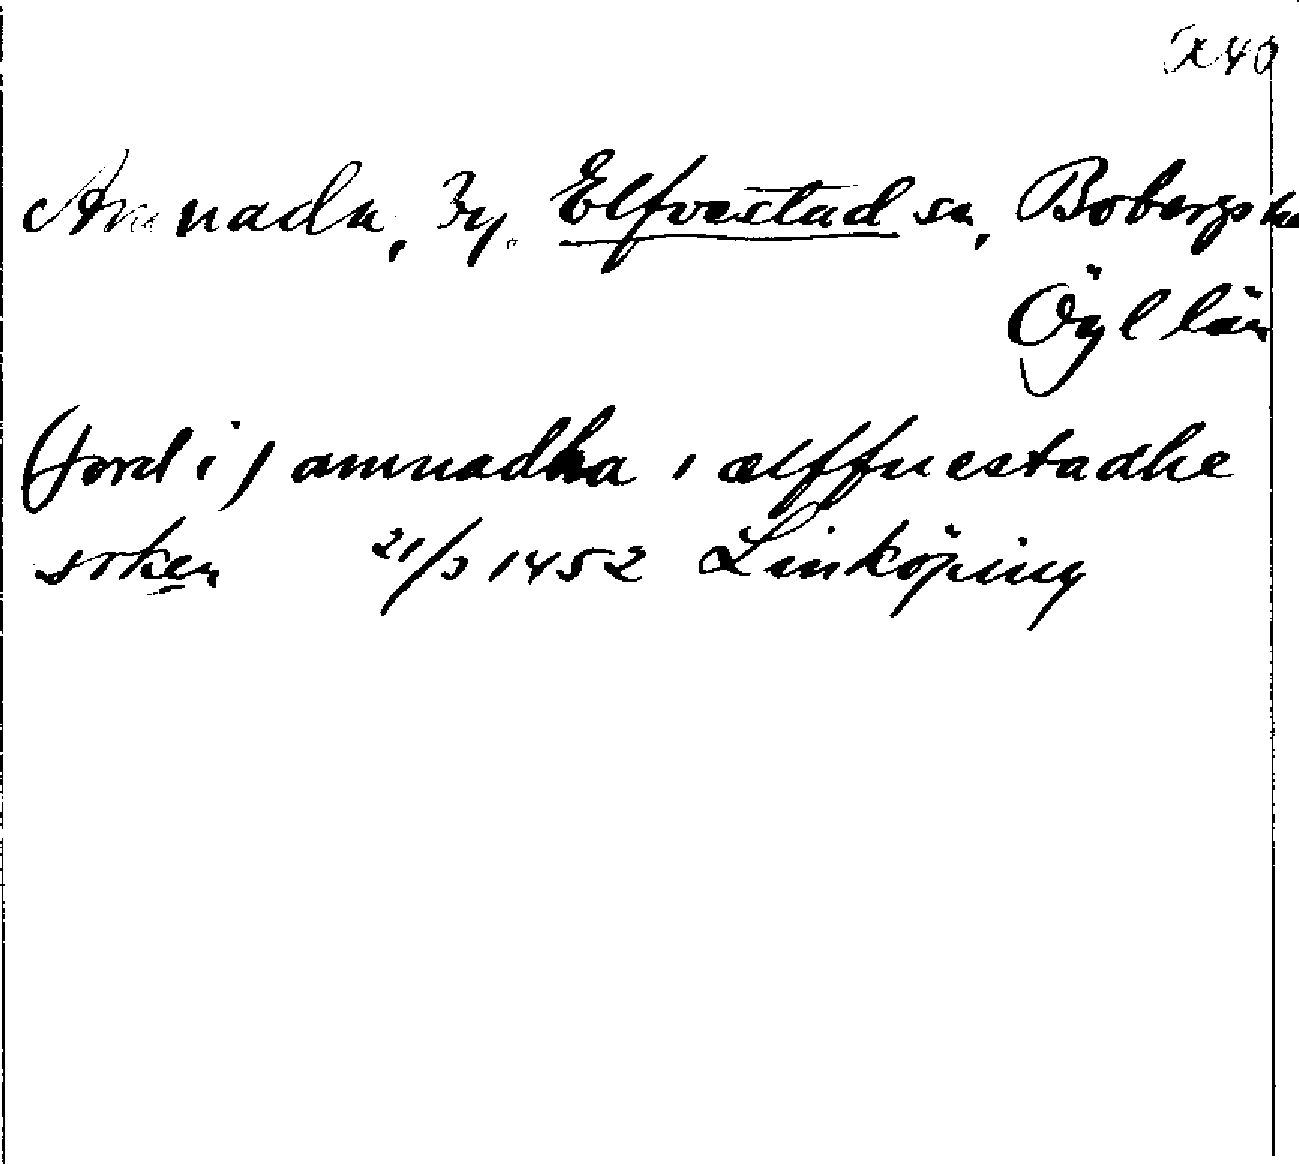 Amnada, By, Elfvestad sn, Bobergs hd
Ögl län
(jord i) amnadha i ælffuestadhe
soken 21/3 1452 Linköping